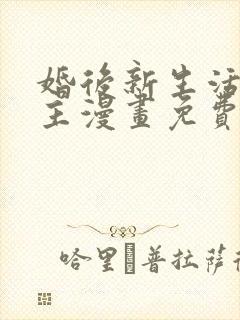 婚後新生活
主漫畫免費
哈里 普拉薩